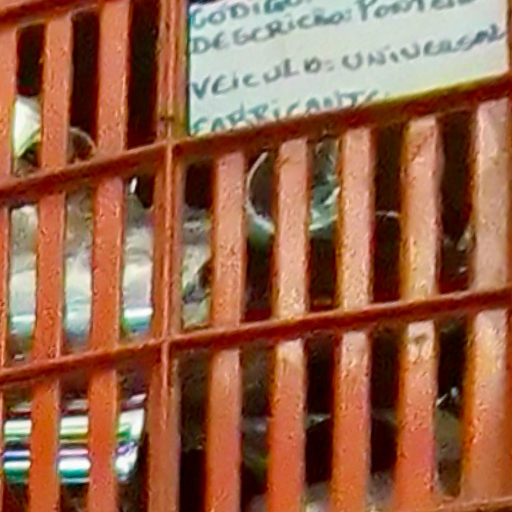 CODIGO
DESCRICÃO: PONTEIRA
VEICULO: UNIVERSAL
FABRICANTE